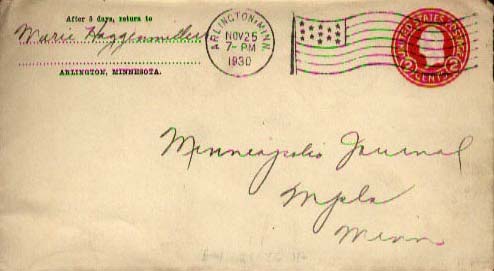 After 5 days, return to
Marie Haggenmiller
ARLINGTON, MINNESOTA.
ARLINGTON, MINN.
NOV 25
7-PM
1930
UNITED STATES POSTAGE
2 CENTS 2
Minneapolis Journal
Mpls
Minn